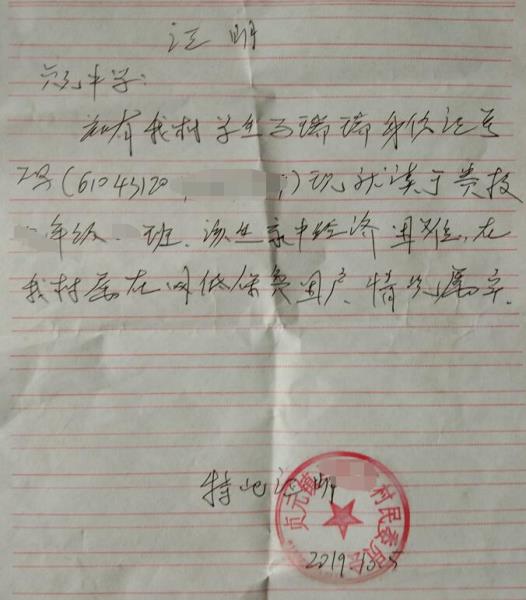 证明
贞元中学:
兹有我村学生马瑞瑞身份证号
码(61043120)现就读于贵校
年级班.该生家中经济困难,在
我村属在册低保贫困户,情况属实.
特此证明
贞元镇村民委员会
2019